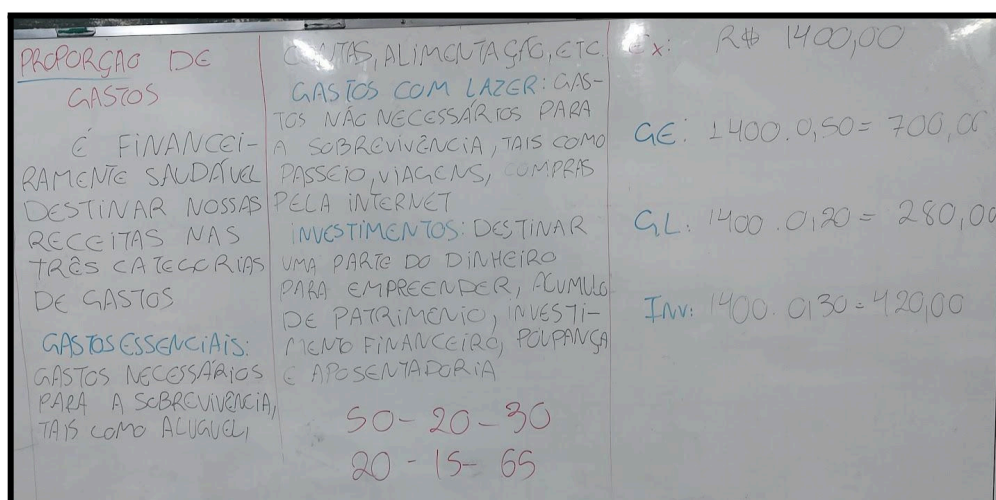 PROPORÇÃO DE
GASTOS
É FINANCEI-
RAMENTE SAUDÁVEL
DESTINAR NOSSAS
RECEITAS NAS
TRÊS CATEGORIAS
DE GASTOS
GASTOS ESSENCIAIS:
GASTOS NECESSÁRIOS
PARA A SOBREVIVÊNCIA,
TAIS COMO ALUGUEL,
CONTAS, ALIMENTAÇÃO, ETC.
GASTOS COM LAZER: GAS-
TOS NÃO NECESSÁRIOS PARA
A SOBREVIVÊNCIA, TAIS COMO
PASSEIO, VIAGENS, COMPRAS
PELA INTERNET
INVESTIMENTOS: DESTINAR
UMA PARTE DO DINHEIRO
PARA EMPREENDER, ACUMULO
DE PATRIMÔNIO, INVESTI-
MENTO FINANCEIRO, POUPANÇA
E APOSENTADORIA
50 - 20 - 30
20 - 15 - 65
Ex: R$ 1400,00
GE: 1400.0,50 = 700,00
GL: 1400.0,20 = 280,00
INV: 1400.0,30 = 420,00